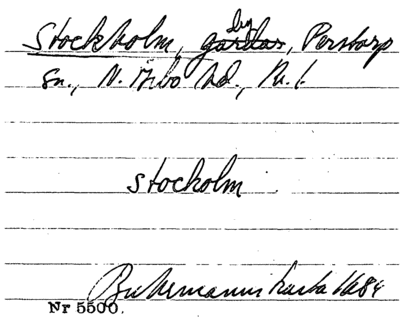 Stockholm, by gårdar, Perstorp
sn., N. Åsbo hd., Kr. l.
Stocholm
Buhrmanns karta 1684
Nr 5500.